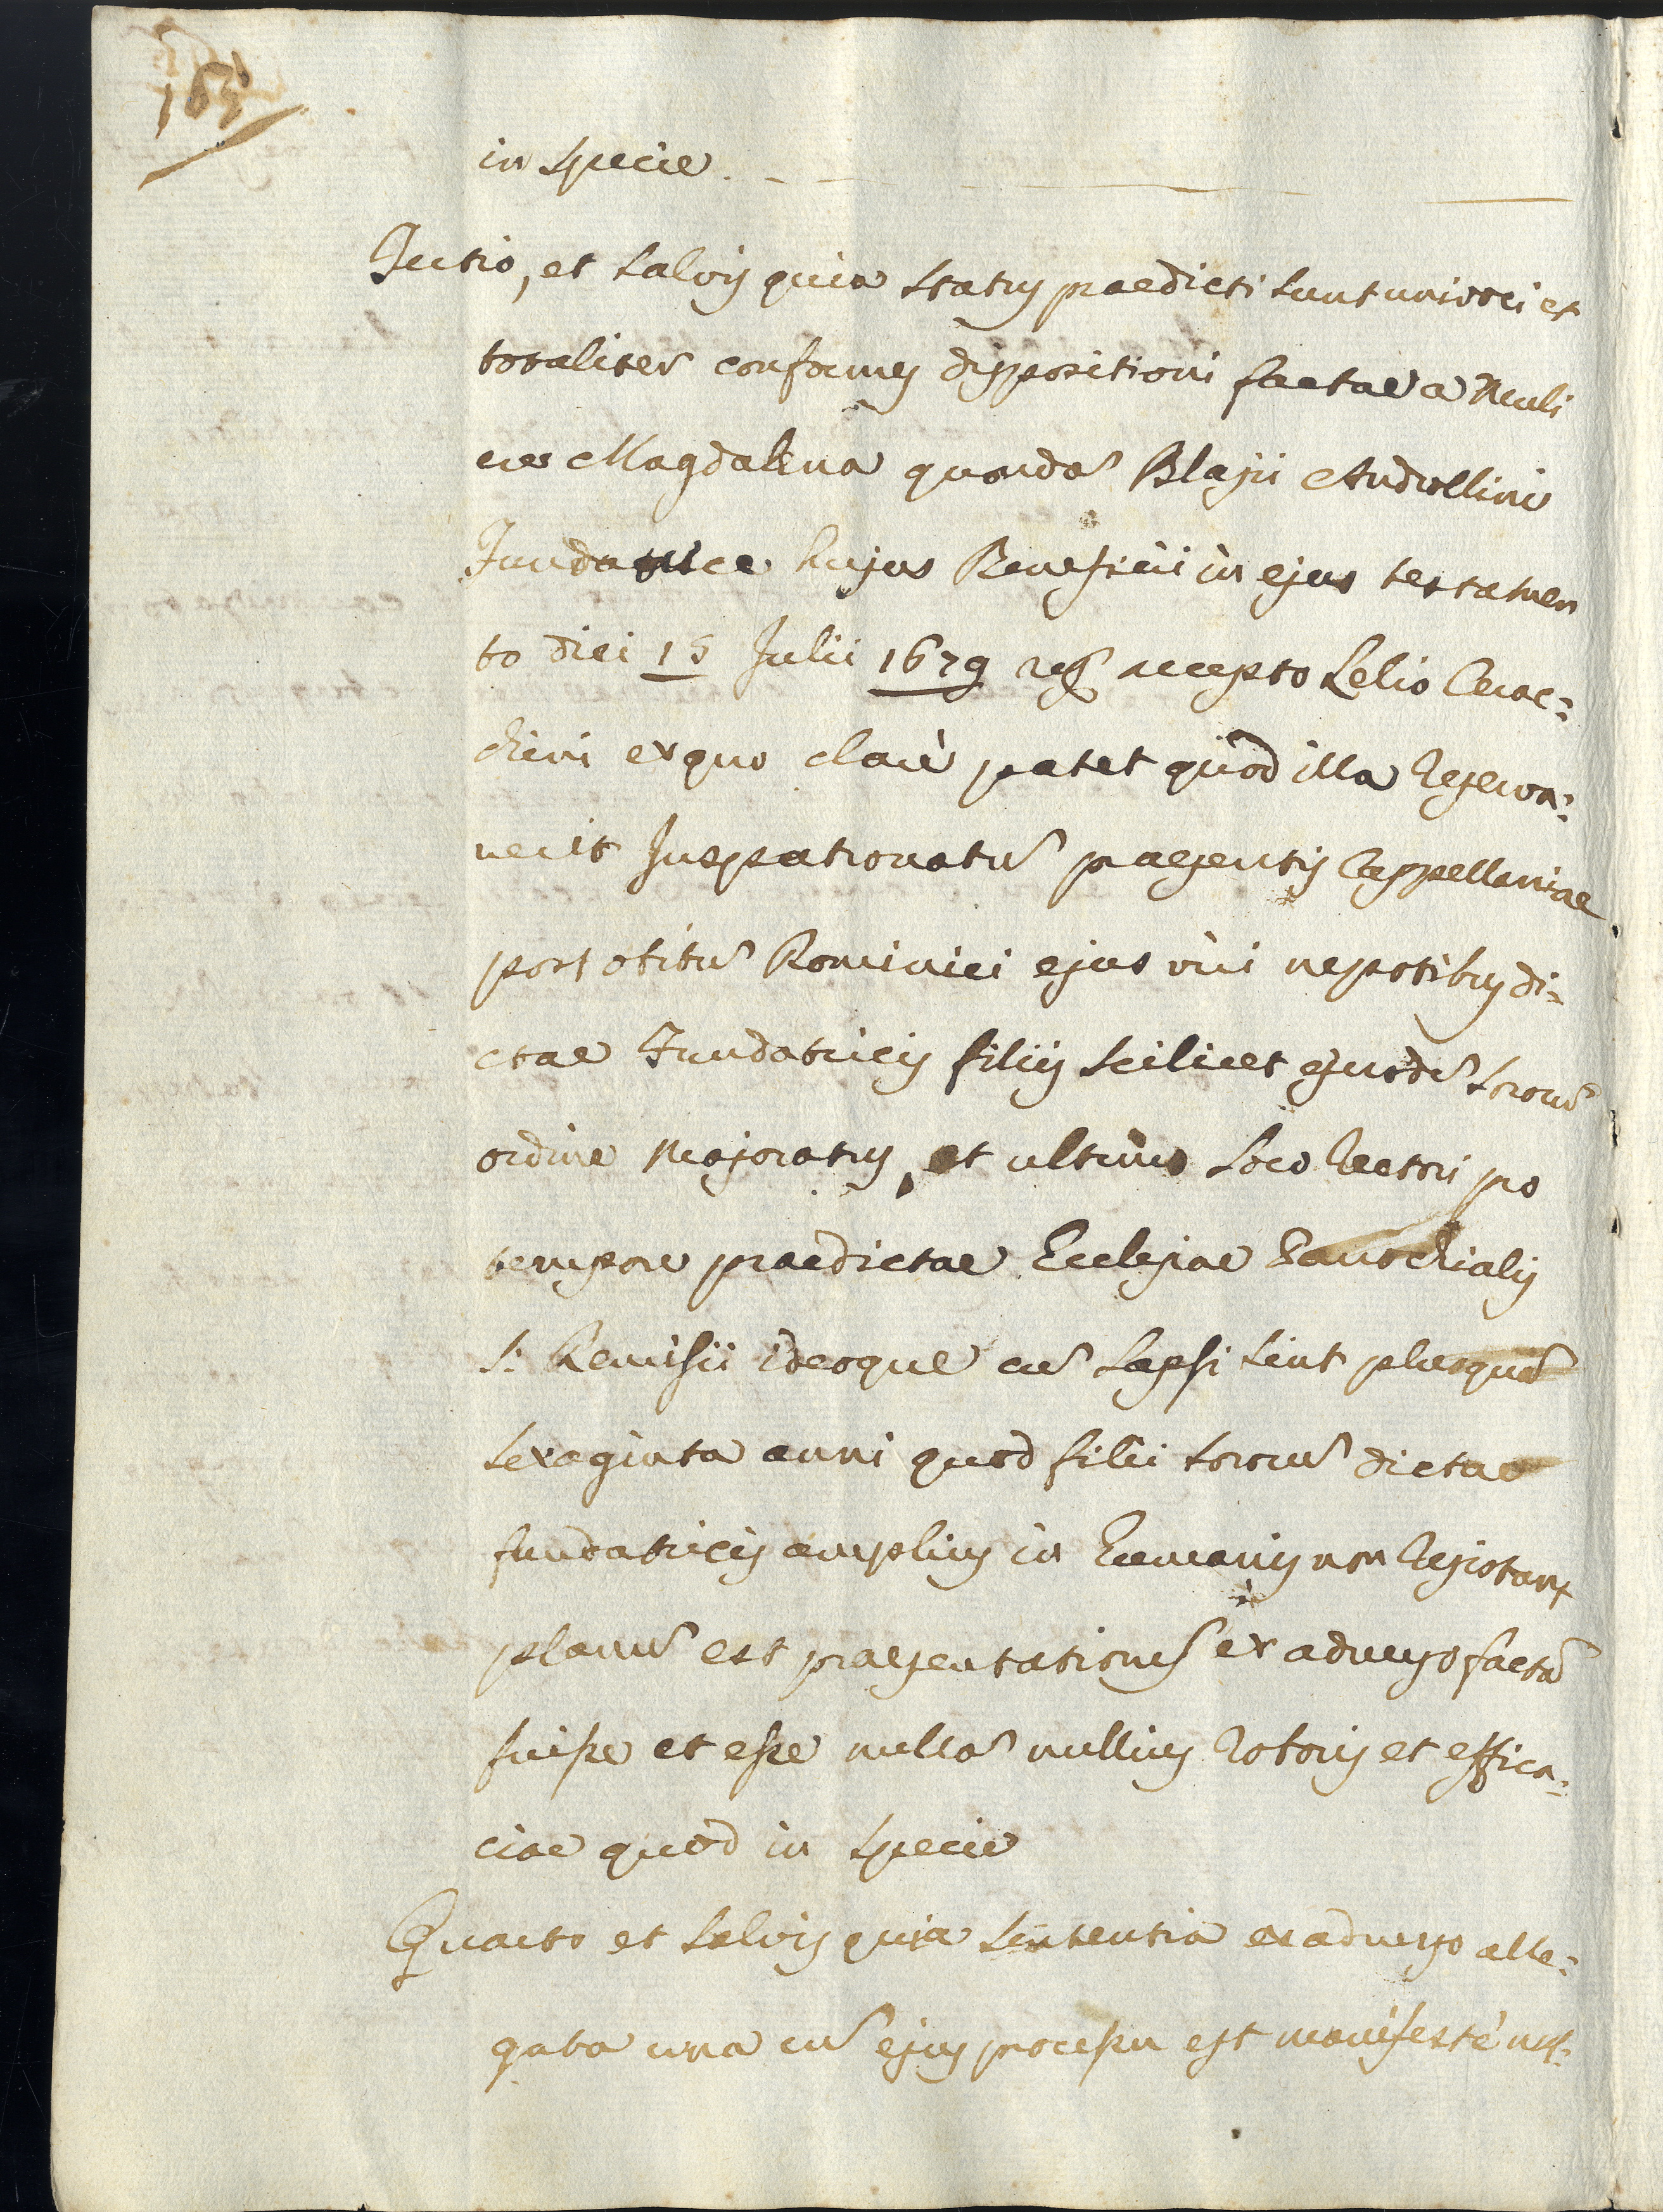 163
in specie
Tertio, et salvis quia status praedicti sunt univoci et
totaliter conformes dispositioni factae a Muli
ere Magdalena quondã Blasii Androllini
Fundatrice hujus Beneficii in ejus testamen
to diei 15 Julii 1679 rog. accepto Lelio Cerac=
chini ex quo clarè patet quòd illa Reserva=
verit Juspatronatũ praesentis Cappellaniae
post obitũ Dominici ejus viri nepotibus di=
ctae Fundatricis filiis scilicet ejusdẽ sororũ
ordine Majoratus, et ultimo loco Rectori pro
tempore praedictae Ecclesiae Parochialis
S. Remisii ideoque cũ lapsi sint plusquã
sexaginta anni quod filii sororũ dictae
fundatricis amplius in humanis non Existant
planũ est praesentationẽ ex adverso factã
fuisse et esse nullã nullius Roboris et effica=
ciae quod in specie
Quarto et salvis quia sententia ex adverso alle=
gata una cũ ejus processu est manifestè nul=